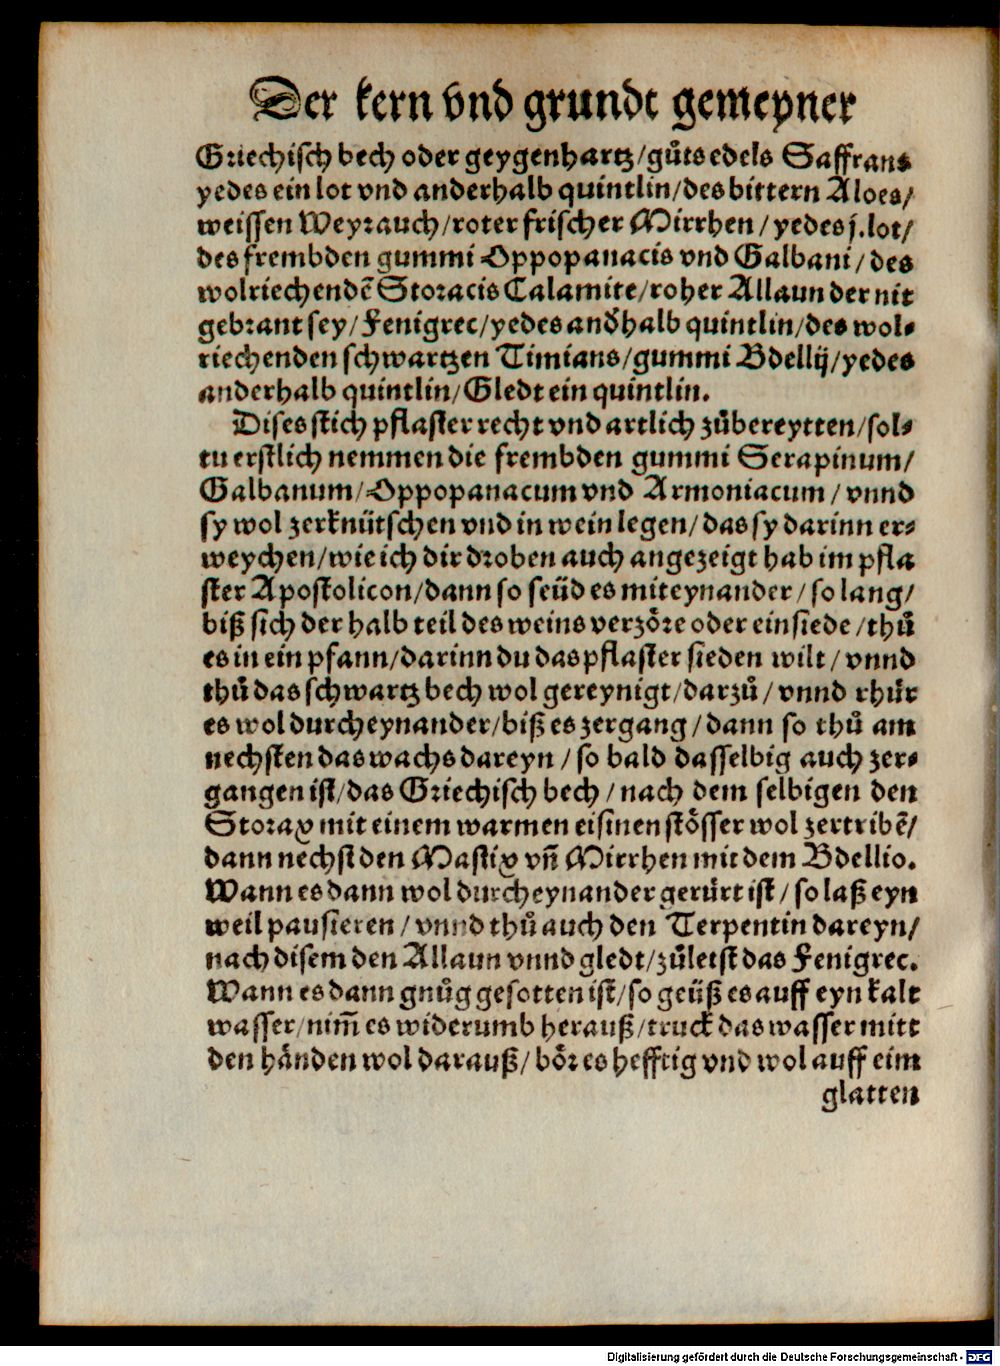 Der kern vnd grundt gemeyner
Griechisch bech oder geygenhartz/gůts edels Saffrans
yedes ein lot vnd anderhalb quintlin/des bittern Aloes/
weissen Weyrauch/roter frischer Mirrhen/yedes j.lot/
des frembden gummi Oppopanacis vnd Galbani/des
wolriechendẽ Storacis Calamite/roher Allaun der nit
gebrant sey/Fenigrec/yedes andhalb quintlin/des wol-
riechenden schwartzen Timians/gummi Bdellij/yedes
anderhalb quintlin/Gledt ein quintlin.
Dises stich pflaster recht vnd artlich zůbereytten/sol-
tu erstlich nemmen die frembden gummi Serapinum/
Galbanum/Oppopanacum vnd Armoniacum/vnnd
sy wol zerknütschen vnd in wein legen/das sy darinn er-
weychen/wie ich dir droben auch angezeigt hab im pfla
ster Apostolicon/dann so seüd es miteynander/so lang/
biß sich der halb teil des weins verzöre oder einsiede/thů
es in ein pfann/darinn du das pflaster sieden wilt/vnnd
thů das schwartz bech wol gereynigt/darzů/vnnd rhür
es wol durcheynander/biß es zergang/dann so thů am
nechsten das wachs dareyn/so bald dasselbig auch zer-
gangen ist/das Griechisch bech/nach dem selbigen den
Storax mit einem warmen eisinen stösser wol zertribẽ/
dann nechst den Mastix vñ Mirrhen mit dem Bdellio.
Wann es dann wol durcheynander gerürt ist/so laß eyn
weil pausieren/vnnd thů auch den Terpentin dareyn/
nach disem den Allaun vnnd gledt/zůletst das Fenigrec.
Wann es dann gnůg gesotten ist/so geüß es auff eyn kalt
wasser/nim̃ es widerumb herauß/truck das wasser mitt
den händen wol darauß/bör es hefftig vnd wol auff eim
glatten
Digitalisierung gefördert durch die Deutsche Forschungsgemeinschaft - DFG